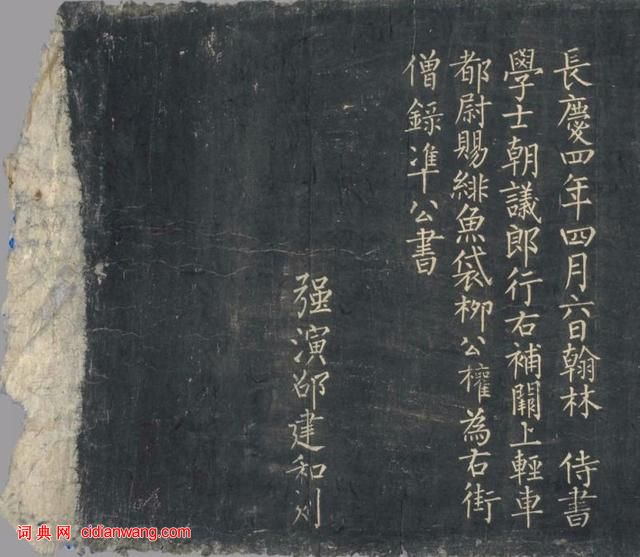 長慶四年四月六日翰林 侍書
學士朝議郎行右補闕上輕車
都尉賜緋魚袋柳公權為右街
僧錄準公書
强演邵建和刻
词典网 cidianwang.com